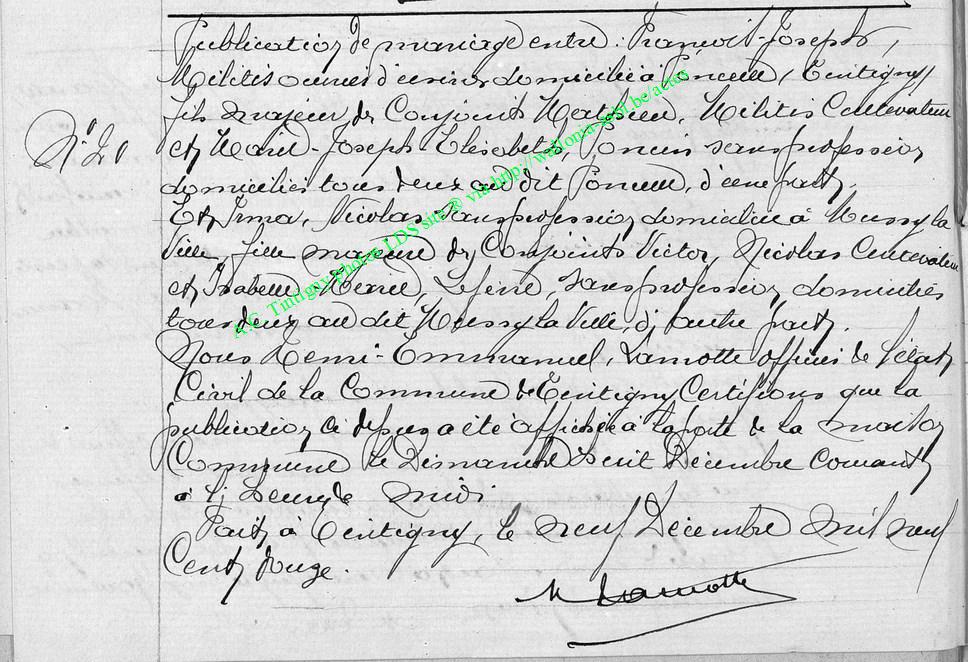 Publication de mariage entre : François-Joseph,
Militis ouvrier d'usines domicilié à Poncelle, (Tintigny)
fils majeur de Conjoints Mathieu, Militis Cultivateur
N° 20
et Marie-Joseph Elisabeth, Poncin sans profession
domiciliés tous deux au dit Poncelle, d'une part,
Et Irma, Nicolas sans profession domiciliée à Mussy la
Ville, fille majeure de Conjoints Victor, Nicolas Cultivateur
et Isabelle Lefèvre sans profession domiciliés
tous deux au dit Mussy la Ville, d'autre part.
Nous Remi-Emmanuel, Lamotte officier de l'état
Civil de la Commune de Tintigny Certifions que la
publication ci dessus a été affichée à la porte de la maison
Commune le Dimanche huit Décembre Courant
à l'heure de midi
Fait à Tintigny, le neuf Décembre mil neuf
Cent douze.
Lamotte
A.G. Tintigny Photos LDS site ® via http://wallonia-asbl.be/actes